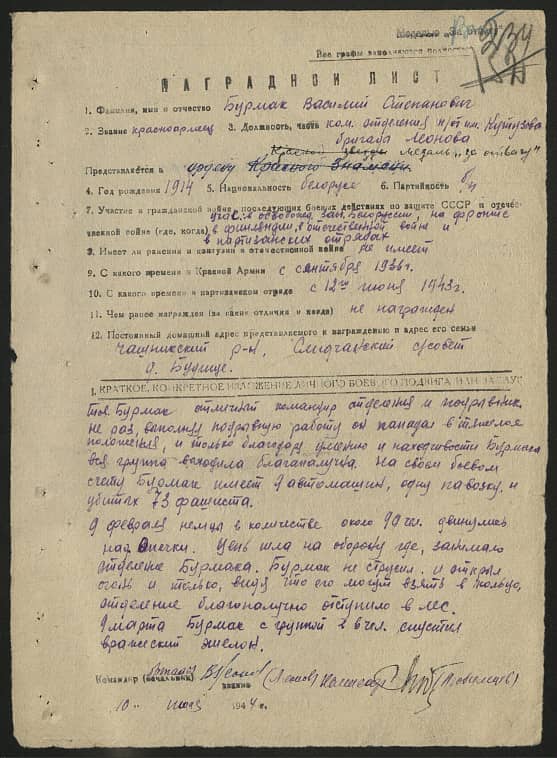 Медалью "За Отвагу"
234
Все графы заполняются полностью
НАГРАДНОЙ ЛИСТ
1. Фамилия, имя и отчество Бурмак Василий Степанович
2. Звание красноармеец 3. Должность, часть ком. отделения п/от им. Кутузова
бригада Леонова
Красной звезды медаль "за отвагу"
Представляется к ордену Красного Знамени
4. Год рождения 1914 5. Национальность белорус 6. Партийность б/п
7. Участие в гражданской войне, последующих боевых действиях по защите СССР и отечес-
учас. в освобожд. зап. Белоруссии, на фронте
твенной войне (где, когда) в финляндии, в отечественной войны и
в партизанских отрядах
8. Имеет ли ранения и контузии в отечественной войне не имеет
9. С какого времени в Красной Армии с сентября 1936г.
10. С какого времени в партизанском отряде с 12го июня 1943г.
11. Чем ранее награжден (за какие отличия и когда) не награжден
12. Постоянный домашний адрес представляемого к награждению и адрес его семьи
Чашникский р-н, с/совет
д. Будище.
1. КРАТКОЕ, КОНКРЕТНОЕ ИЗЛОЖЕНИЕ ЛИЧНОГО БОЕВОГО ПОДВИГА ИЛИ ЗАСЛУГ
тов. Бурмак отличный командир отделения и подрывник
не раз, выполняя подрывную работу он попадал в тяжелое
положения, и только благодаря умению и находчивости Бурмака
вся группа выходила благополучна. На своем боевом
счету Бурмак имеет 9 автомашин, одну повозку и
убитых 73 фашиста.
9 февраля немцы в количестве около 90 чел. двинулись
над Слечки. Цепь шла на оборону где, занимало
отделение Бурмака. Бурмак не струсил и открыл
огонь и только, видя что его могут взять в кольцо,
отделение благополучно отступило в лес.
9 марта Бурмак с группой 26 чел. спустил
вражеский эшелон.
Командир (начальник) (Леонов) Комиссар
звание
10 июля 1944 г.